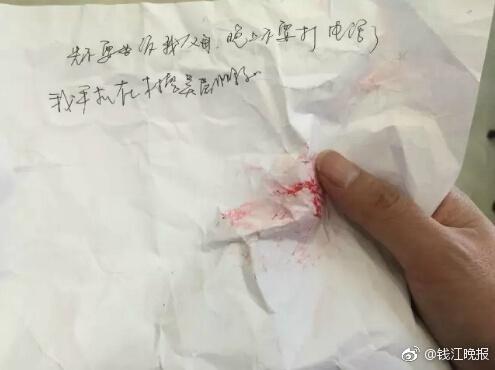 先不要告诉我父母,晚上不要打电话了
我手机在
@钱江晚报